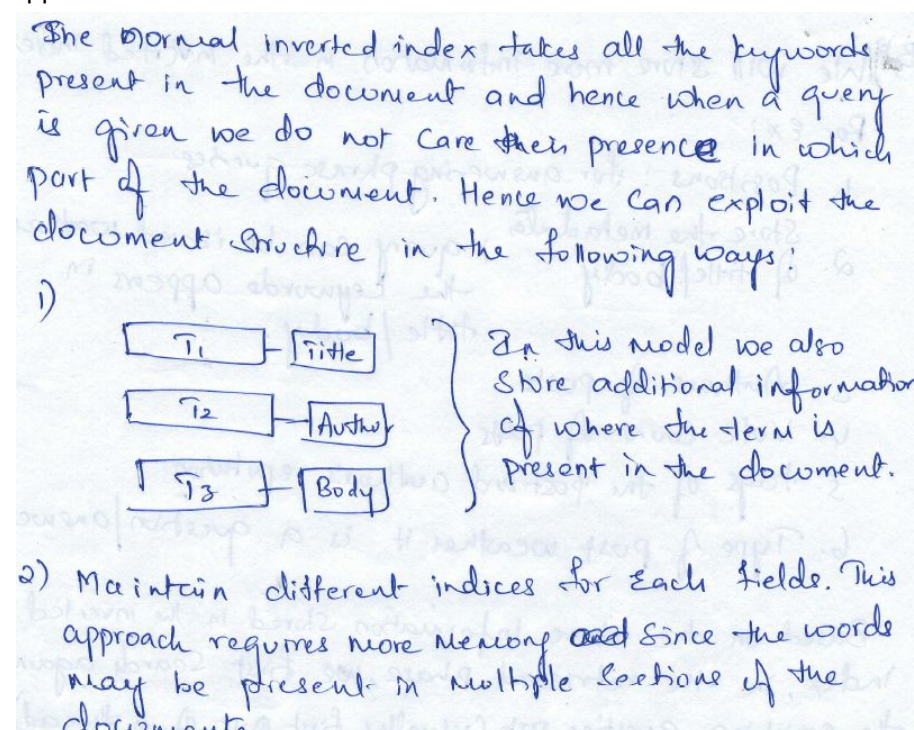 The normal inverted index takes all the keywords
present in the document and hence when a query
is given we do not care their presence in which
part of the document. Hence we can exploit the
document structure in the following ways.
1)
T1 Title
T2 Author
T3 Body
In this model we also
store additional information
of where the term is
present in the document.
2) Maintain different indices for Each fields. This
approach requires more memory since the words
may be present in multiple sections of the
documents